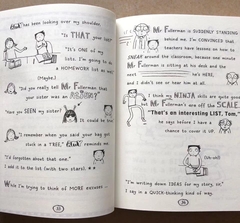 has been looking over my shoulder.
"Is THAT your list?"
"It's ONE of my
lists. I'm going to do a
HOMEWORK list as well."
(Maybe.)
"Did you really tell Mr Fullerman that
your sister was an
"Have you SEEN my sister?
It could be true."
"I remember when you said your bag got
stuck in a TREE," reminds me.
"I'd forgotten about that one."
I add it to the list (with two stars).
While I'm trying to think of MORE excuses
Mr Fullerman is SUDDENLY STANDING
behind me. I'm CONVINCED that
teachers have lessons on how to
SNEAK around the classroom, because one minute
Mr Fullerman is sitting at his desk and the
next he's HERE,
and I didn't see or hear him at all.
I think my NINJA skills are quite good
Mr Fullerman's are off the SCALE.
"That's an interesting LIST, Tom,"
he says before I have a
chance to cover it up.
"I'm writing down IDEAS for my story, sir,"
I say in a QUICK-thinking kind of way.